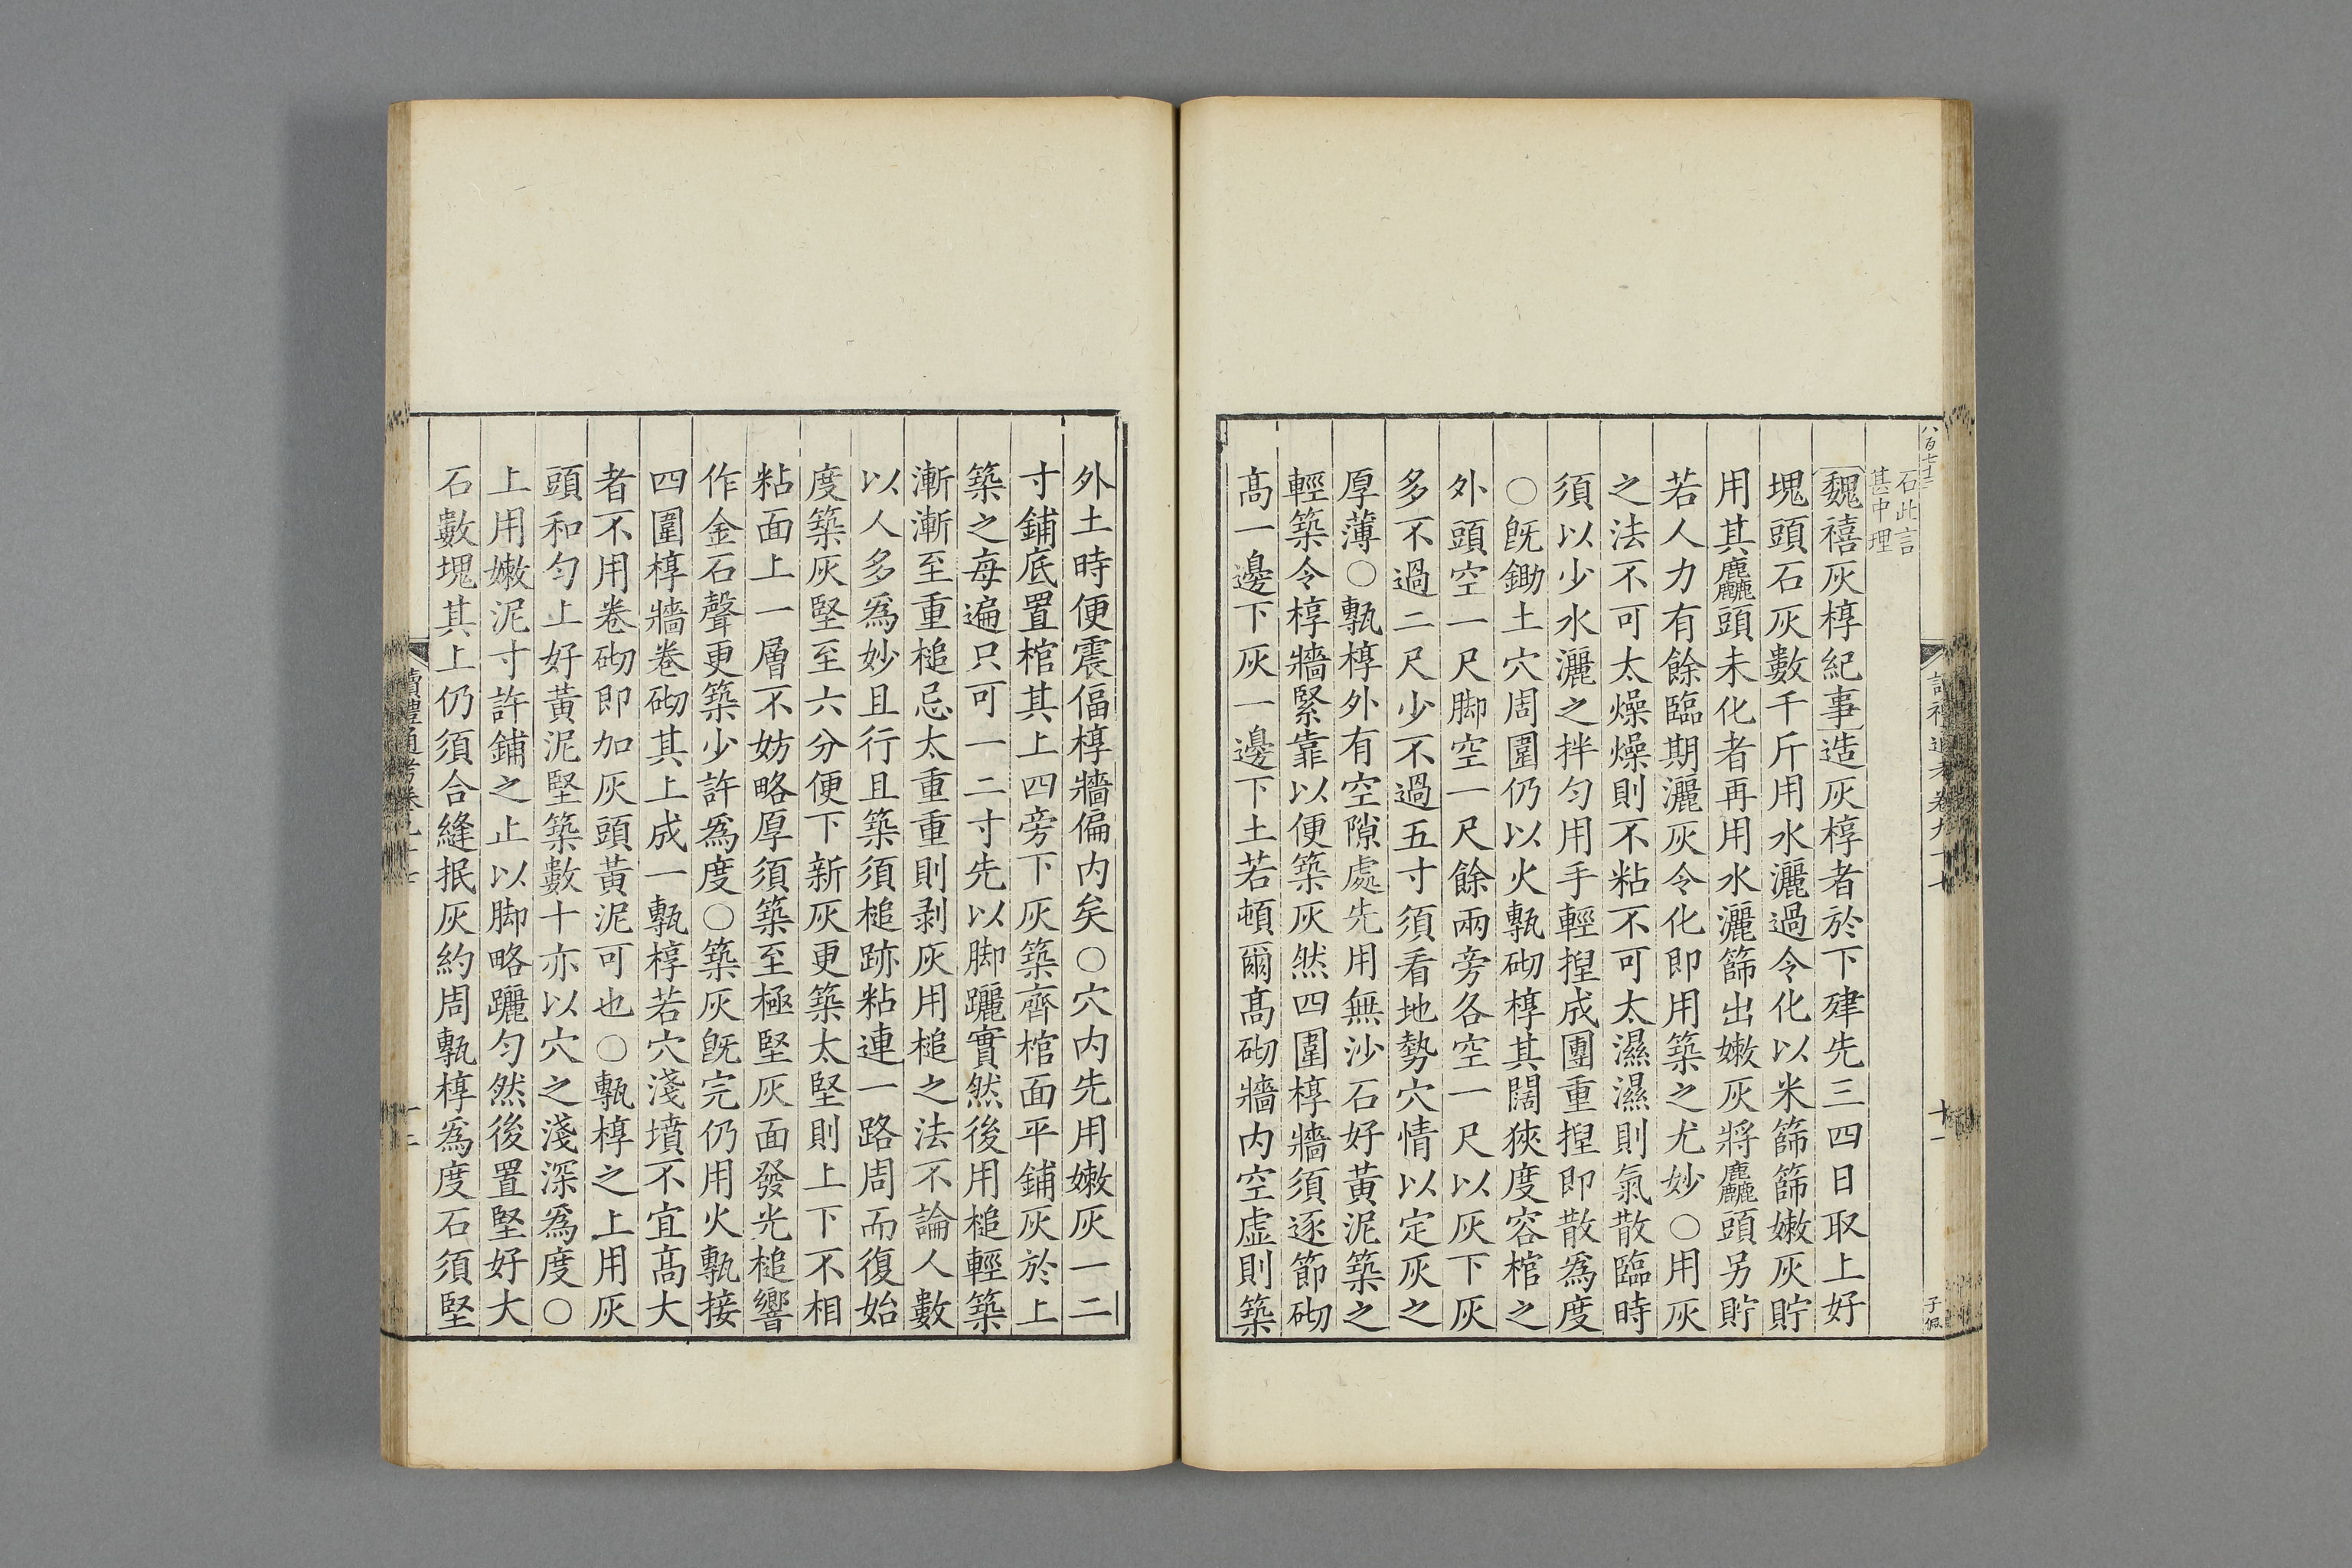 石此言
甚中理
魏禧灰椁紀事造灰椁者於下肂先三四日取上好
塊頭石灰數千斤用水灑過令化以米篩篩嫩灰貯
用其麤頭未化者再用水灑篩出嫩灰將麤頭另貯
若人力有餘臨期灑灰令化即用築之尤妙○用灰
之法不可太燥燥則不粘不可太濕濕則氣散臨時
須以少水灑之拌勻用手輕揑成團重揑即散爲度
○旣鋤土穴周圍仍以火甎砌椁其闊狹度容棺之
外頭空一尺脚空一尺餘兩旁各空一尺以灰下灰
多不過二尺少不過五寸須看地勢穴情以定灰之
厚薄○甎椁外有空隙處先用無沙石好黃泥築之
輕築令椁牆緊靠以便築灰然四圍椁牆須逐節砌
高一邊下灰一邊下土若頓爾高砌牆内空虛則築
外土時便震偪椁牆偏内矣○穴内先用嫩灰一二
寸鋪底置棺其上四旁下灰築齊棺面平鋪灰於上
築之每遍只可一二寸先以脚躧實然後用槌輕築
漸漸至重槌忌太重重則剥灰用槌之法不論人數
以人多爲妙且行且築須槌跡粘連一路周而復始
度築灰堅至六分便下新灰更築太堅則上下不相
粘面上一層不妨略厚須築至極堅灰面發光槌響
作金石聲更築少許爲度○築灰旣完仍用火甎接
四圍椁牆卷砌其上成一甎椁若穴淺墳不宜高大
者不用卷砌即加灰頭黃泥可也○甎椁之上用灰
頭和勻上好黃泥堅築數十亦以穴之淺深爲度○
上用嫩泥寸許鋪之止以脚略躧勻然後置堅好大
石數塊其上仍須合縫抿灰約周甎椁爲度石須堅